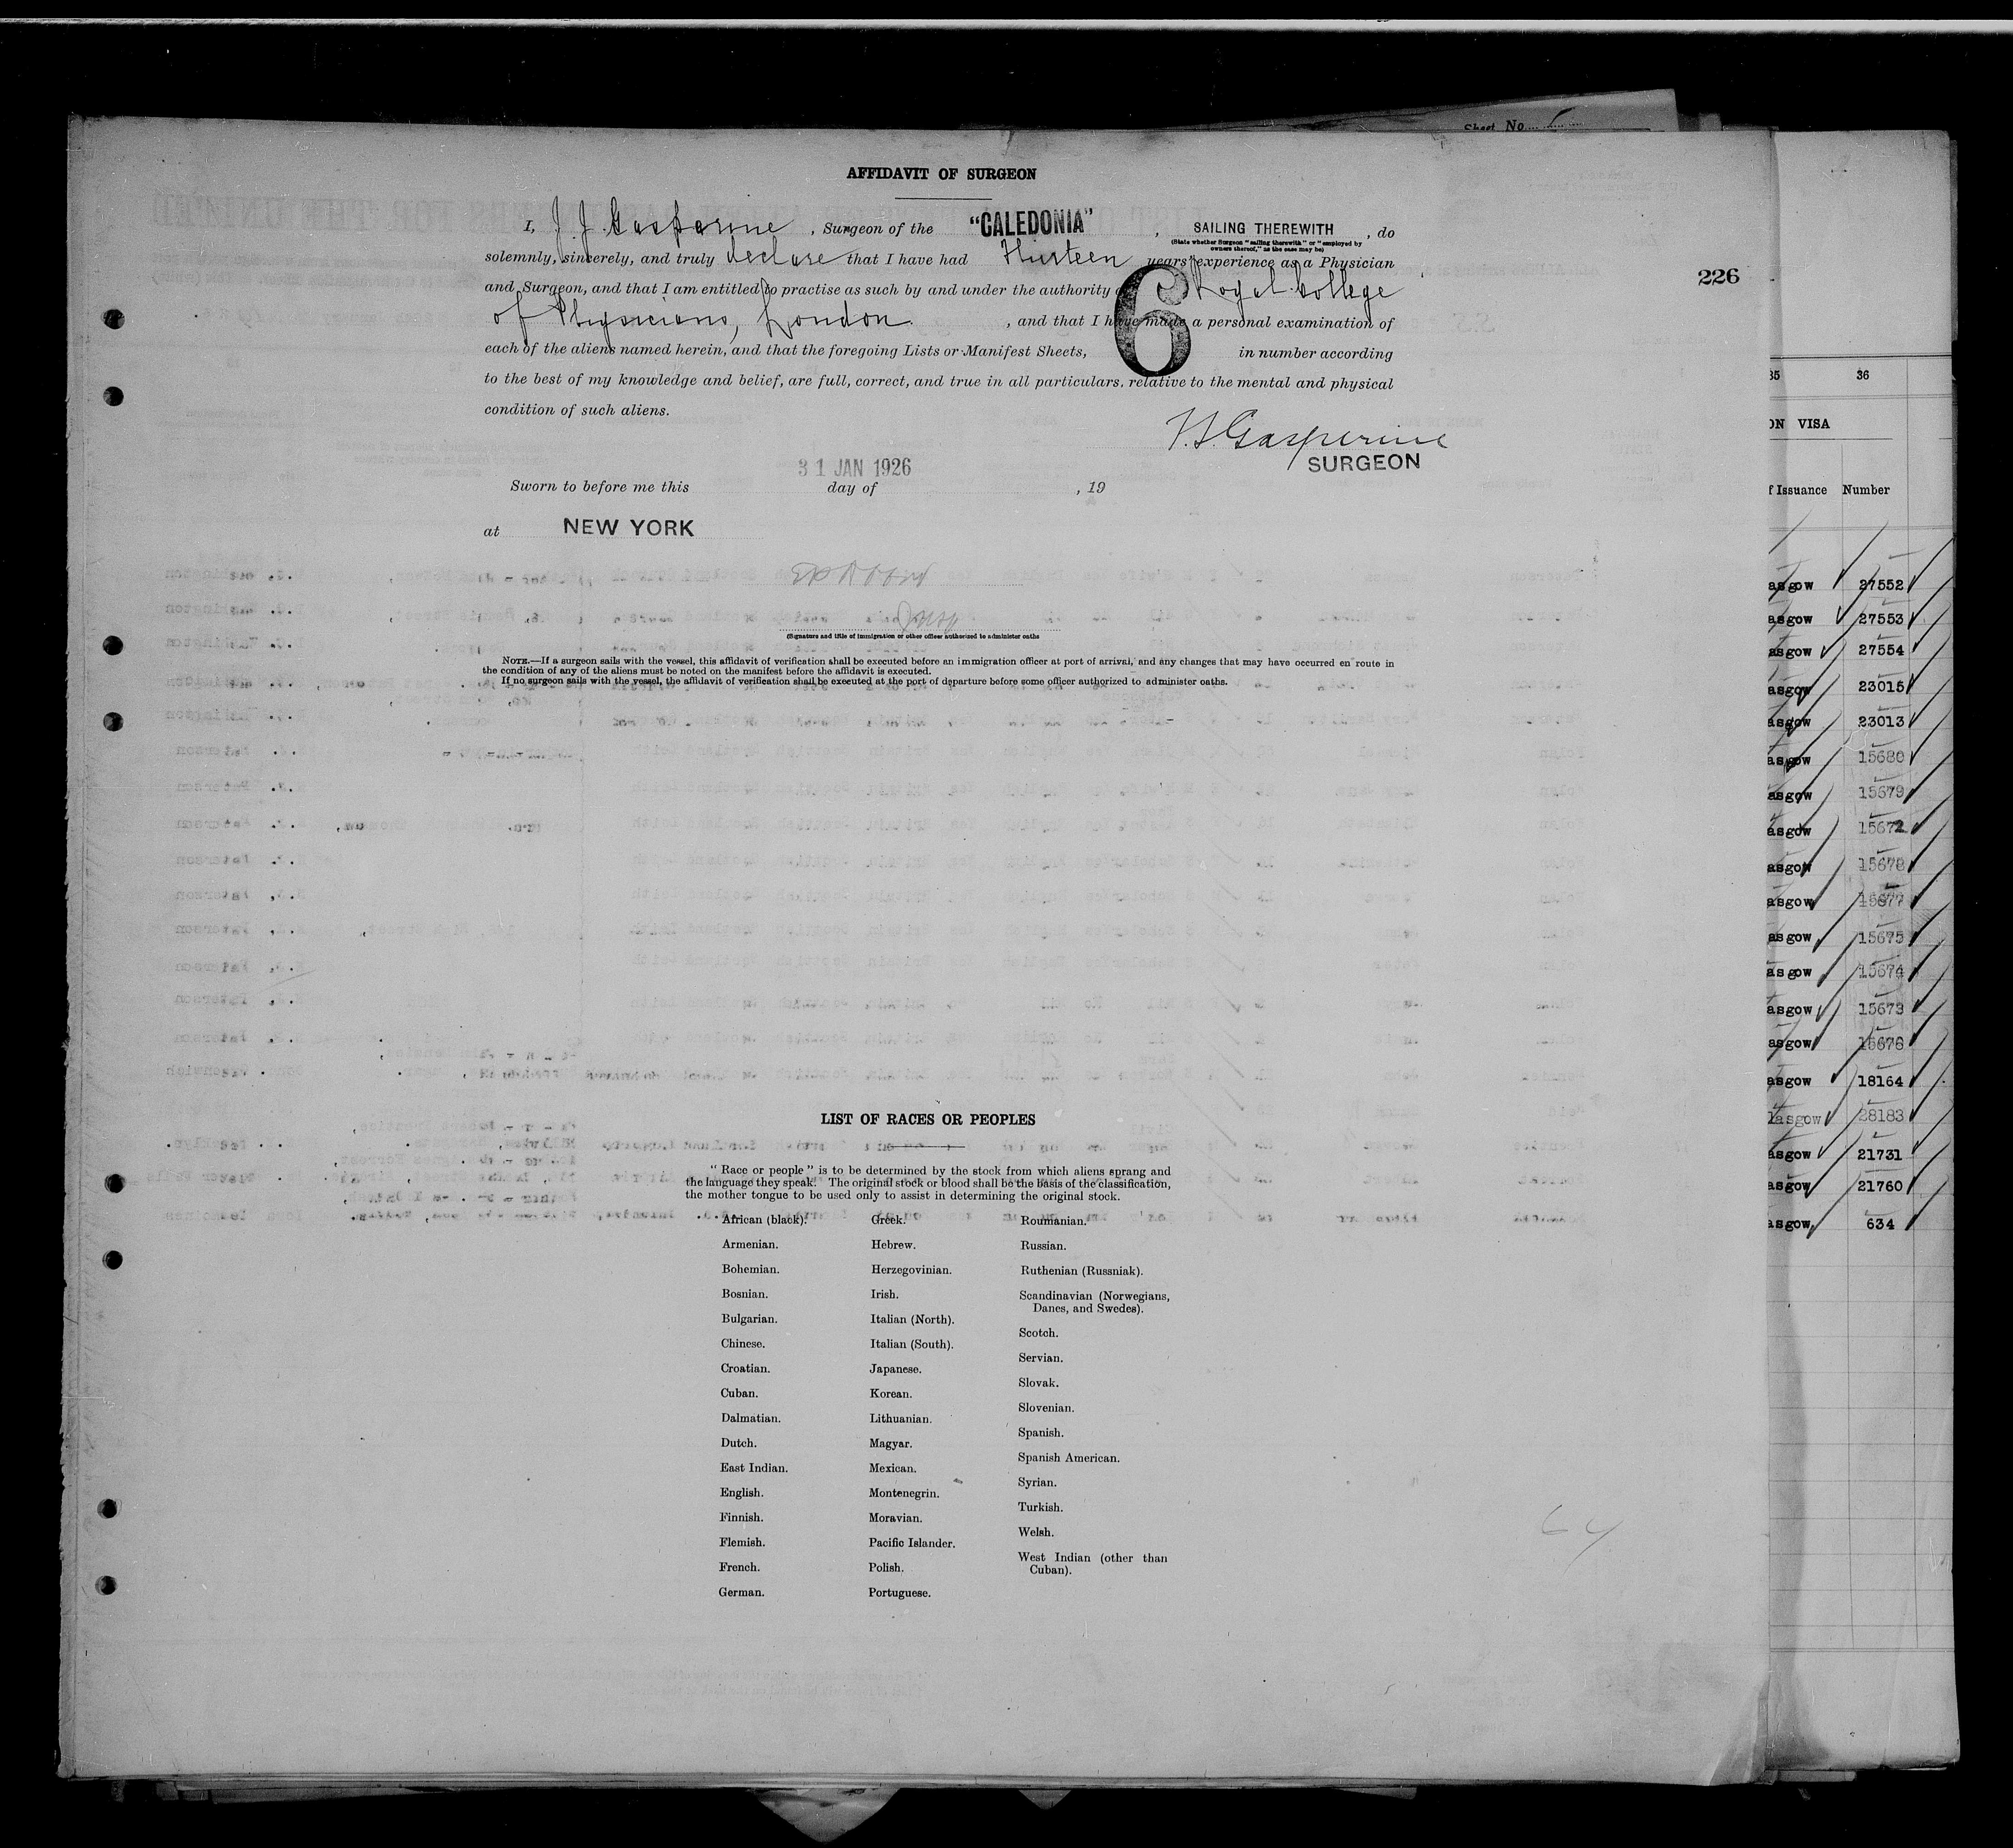 Sheet No.
AFFIDAVIT OF SURGEON
I, J. J. Gasperine, Surgeon of the "CALEDONIA", SAILING THEREWITH, do
(State whether Surgeon "sailing therewith" or "employed by owners thereof," as the case may be)
solemnly, sincerely, and truly declare that I have had Thirteen years' experience as a Physician
and Surgeon, and that I am entitled to practise as such by and under the authority Royal College
of Physicians, London, and that I have made a personal examination of
each of the aliens named herein, and that the foregoing Lists or Manifest Sheets, 6 in number according
to the best of my knowledge and belief, are full, correct, and true in all particulars, relative to the mental and physical
condition of such aliens.
Gasperine
SURGEON
31 JAN 1926
Sworn to before me this day of , 19
at NEW YORK
(Signature and title of immigration or other officer authorized to administer oaths
NOTE.—If a surgeon sails with the vessel, this affidavit of verification shall be executed before an immigration officer at port of arrival, and any changes that may have occurred en route in
the condition of any of the aliens must be noted on the manifest before the affidavit is executed.
If no surgeon sails with the vessel, the affidavit of verification shall be executed at the port of departure before some officer authorized to administer oaths.
LIST OF RACES OR PEOPLES
"Race or people" is to be determined by the stock from which aliens sprang and
the language they speak. The original stock or blood shall be the basis of the classification,
the mother tongue to be used only to assist in determining the original stock.
African (black).
Armenian.
Bohemian.
Bosnian.
Bulgarian.
Chinese.
Croatian.
Cuban.
Dalmatian.
Dutch.
East Indian.
English.
Finnish.
Flemish.
French.
German.
Greek.
Hebrew.
Herzegovinian.
Irish.
Italian (North).
Italian (South).
Japanese.
Korean.
Lithuanian.
Magyar.
Mexican.
Montenegrin.
Moravian.
Pacific Islander.
Polish.
Portuguese.
Roumanian.
Russian.
Ruthenian (Russniak).
Scandinavian (Norwegians,
Danes, and Swedes).
Scotch.
Servian.
Slovak.
Slovenian.
Spanish.
Spanish American.
Syrian.
Turkish.
Welsh.
West Indian (other than
Cuban).
226
35 36
ON VISA
f Issuance Number
asgow 27552
asgow 27553
asgow 27554
asgow 23015
asgow 23013
asgow 15680
asgow 15679
asgow 15672
asgow 15678
asgow 15677
asgow 15675
asgow 15674
asgow 15673
asgow 15676
asgow 18164
lasgow 28183
asgow 21731
asgow 21760
asgow 634